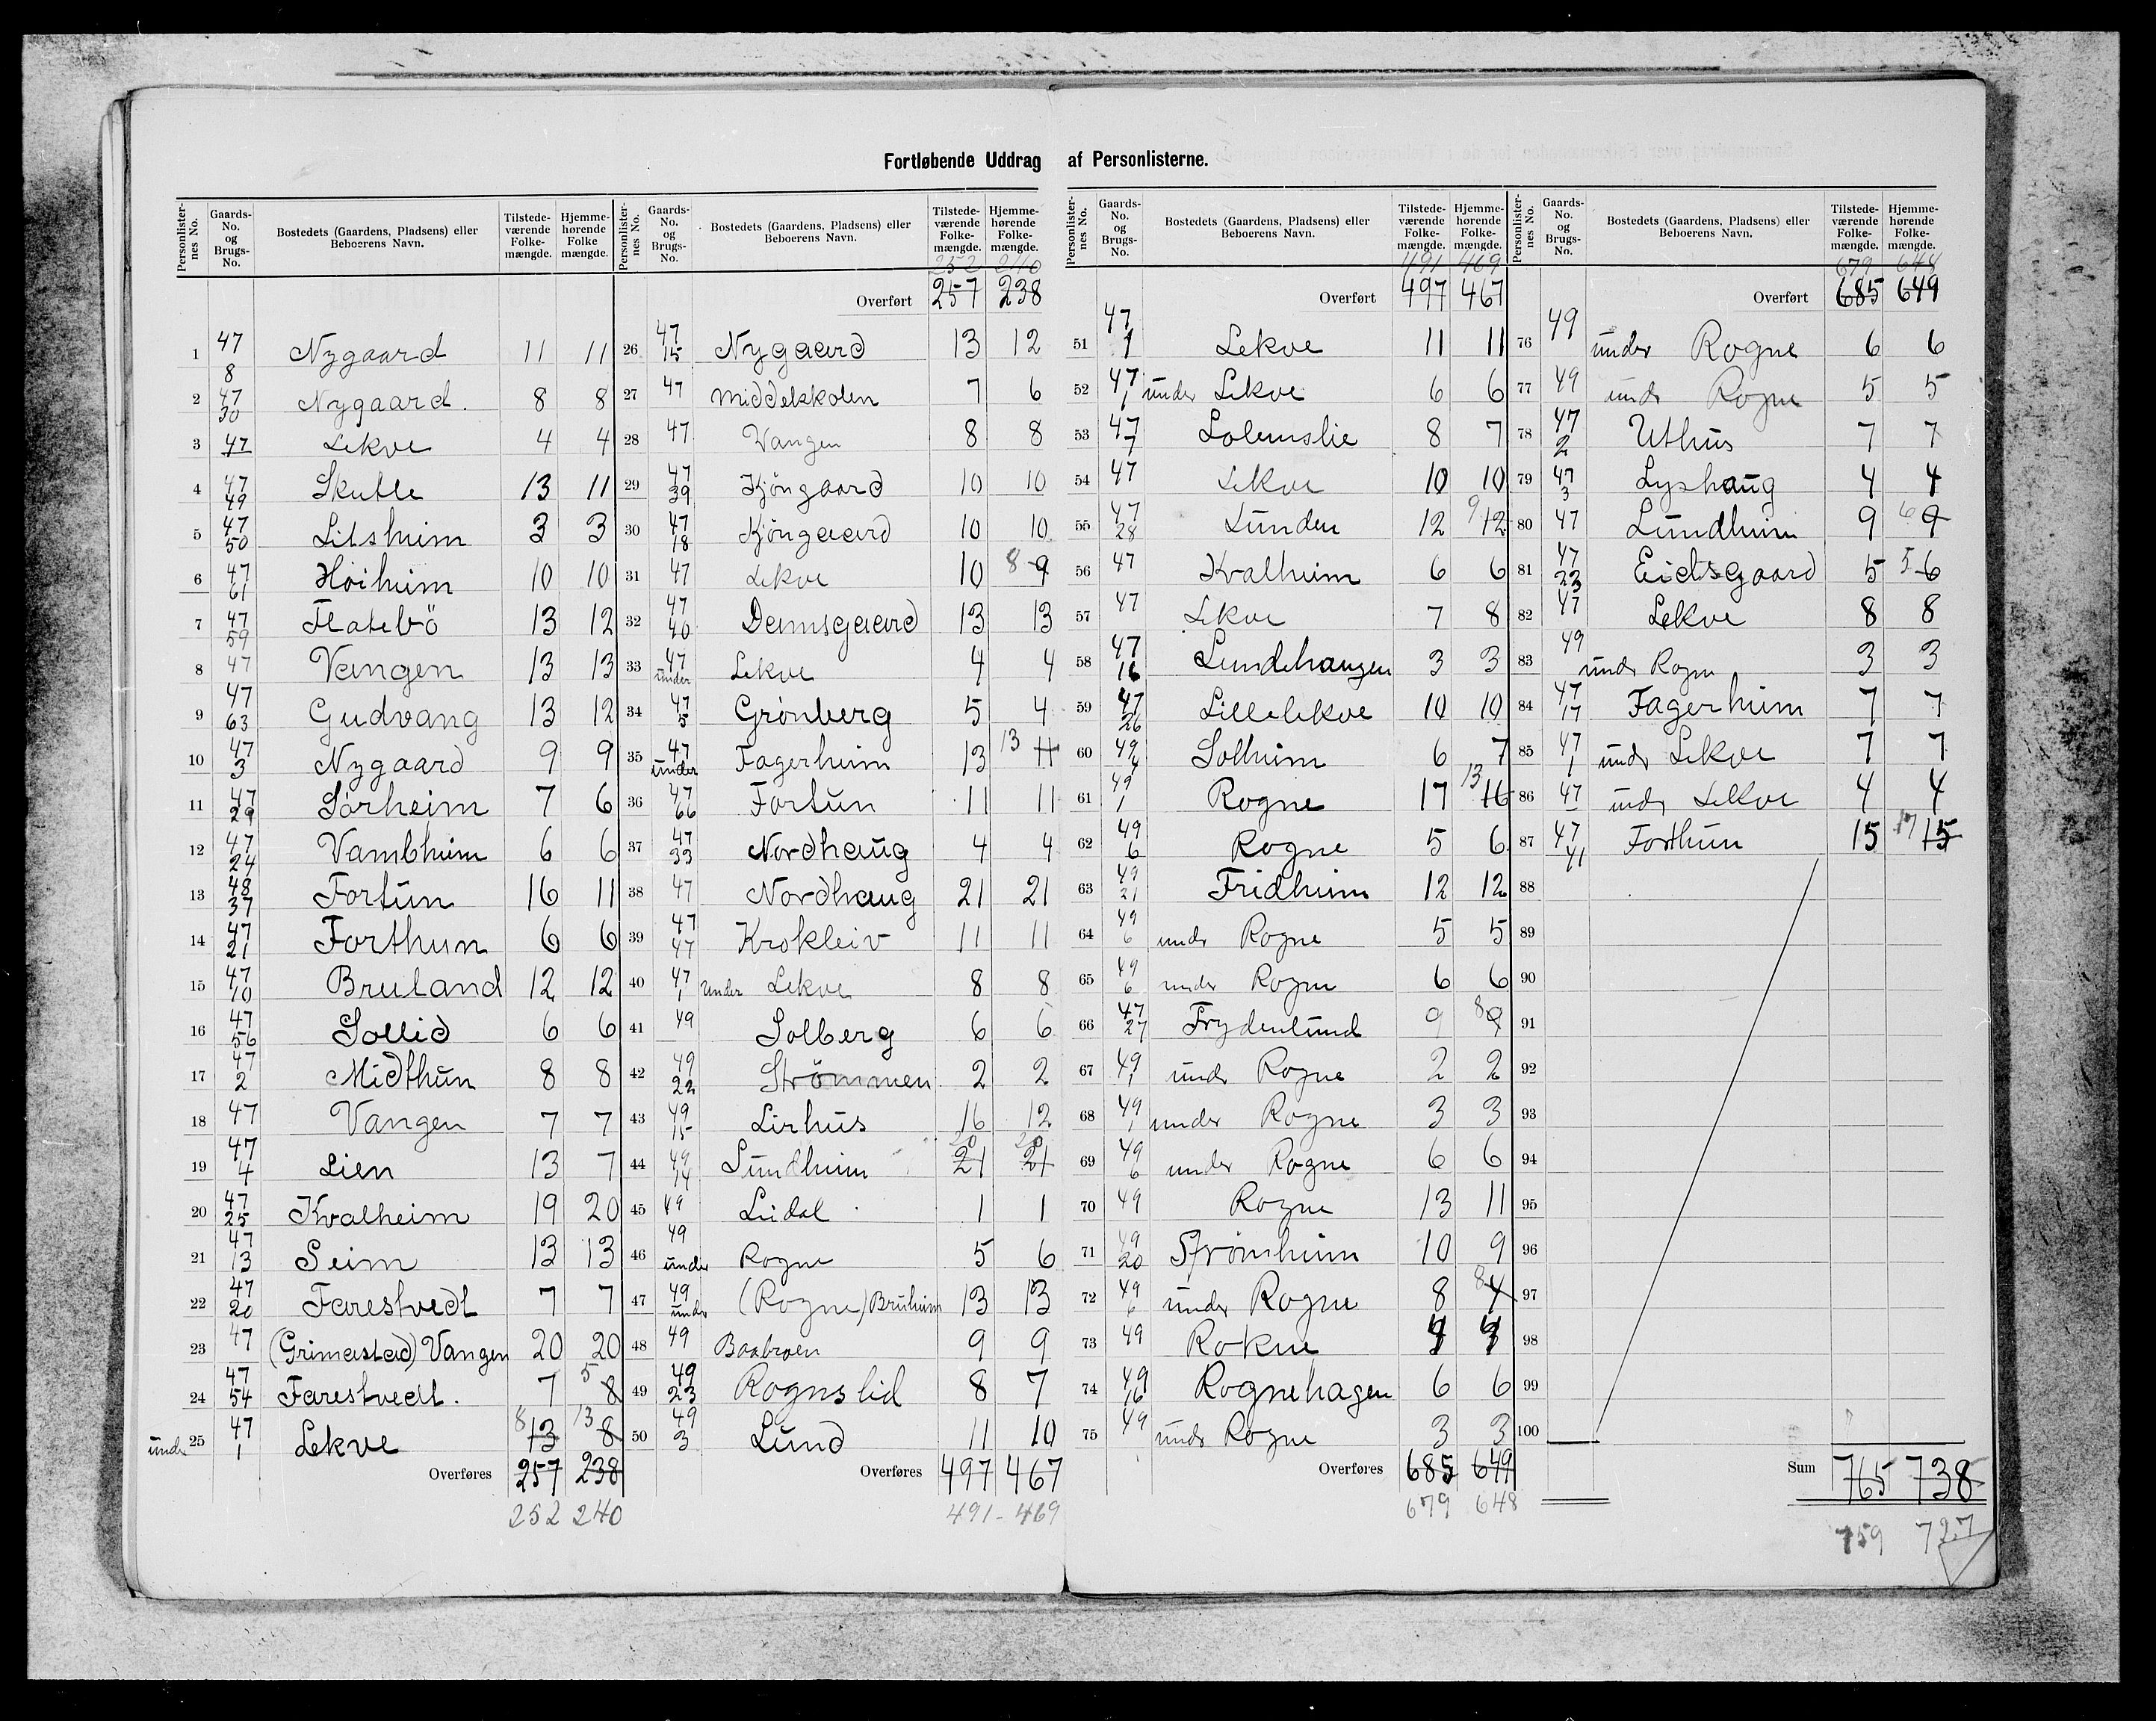 Fortløbende Uddrag af Personlisterne.
Personlisternes No. Gaards-No. og Brugs-No. Bostedets (Gaardens, Pladsens) eller Beboerens Navn. Tilstedeværende Folkemængde. Hjemmehørende Folkemængde.
1 47 8 Nygaard 11 11
2 47 30 Nygaard. 8 8
3 47 Lekve 4 4
4 47 49 Skutle 13 11
5 47 50 Litsheim 3 3
6 47 61 Høiheim 10 10
7 47 59 Flatebö 13 12
8 47 Vangen 13 13
9 47 63 Gudvang 13 12
10 47 3 Nygaard 9 9
11 47 29 Sørheim 7 6
12 47 24 Vambheim 6 6
13 48 37 Fortun 16 11
14 47 21 Forthun 6 6
15 47 10 Bruland 12 12
16 47 56 Sollid 6 6
17 47 2 Midthun 8 8
18 47 Vangen 7 7
19 47 4 Lien 13 7
20 47 25 Kvalheim 19 20
21 47 13 Seim 13 13
22 47 20 Farestvedt 7 7
23 47 (Grimestad) Vangen 20 20
24 47 54 Farestvedt. 7 5 8
under 25 47 1 Lekve 8 13 13 8
Overføres 257 238
252 240
Personlisternes No. Gaards-No. og Brugs-No. Bostedets (Gaardens, Pladsens) eller Beboerens Navn. Tilstedeværende Folkemængde. Hjemmehørende Folkemængde.
252 240
Overført 257 238
26 47 15 Nygaard 13 12
27 47 Middelskolen 7 6
28 47 Vangen 8 8
29 47 39 Kjöngaard 10 10
30 47 18 Kjöngaard 10 10
31 47 Lekve 10 8 9
32 47 40 Damsgaard 13 13
33 47 under Lekve 4 4
34 47 5 Grönberg 5 4
35 47 under Fagerheim 13 13 11
36 47 66 Fortun 11 11
37 47 33 Nordhaug 4 4
38 47 Nordhaug 21 21
39 47 47 Krokleiv 11 11
40 47 1 under Lekve 8 8
41 49 Solberg 6 6
42 49 22 Strømmen 2 2
43 49 15 Lirhus 16 12
44 49 14 Sundheim 20 21 20 21
45 49 Lidal 1 1
46 49 under Rogne 5 6
47 49 under (Rogne) Bruheim 13 13
48 49 Baabroen 9 9
49 49 23 Rognslid 8 7
50 49 3 Lund 11 10
Overføres 497 467
491 - 469
Personlisternes No. Gaards-No. og Brugs-No. Bostedets (Gaardens, Pladsens) eller Beboerens Navn. Tilstedeværende Folkemængde. Hjemmehørende Folkemængde.
491 469
Overført 497 467
51 47 1 Lekve 11 11
52 47 1 under Lekve 6 6
53 47 7 Lolemslie 8 7
54 47 Lekve 10 10
55 47 28 Lunden 12 9 12
56 47 Kvalheim 6 6
57 47 Lekve 7 8
58 47 16 Lundehaugen 3 3
59 47 26 Lillelekve 10 10
60 49 4 Solheim 6 7
61 49 1 Rogne 17 13 16
62 49 6 Rogne 5 6
63 49 21 Fridheim 12 12
64 49 6 under Rogne 5 5
65 49 6 under Rogne 6 6
66 47 27 Frydenlund 9 8 9
67 49 1 under Rogne 2 2
68 49 1 under Rogne 3 3
69 49 6 under Rogne 6 6
70 49 Rogne 13 11
71 49 20 Strømheim 10 9
72 49 6 under Rogne 8 8 4
73 49 Rokne
74 49 16 Rognehagen 6 6
75 49 under Rogne 3 3
Overføres 685 649
679 648
Personlisternes No. Gaards-No. og Brugs-No. Bostedets (Gaardens, Pladsens) eller Beboerens Navn. Tilstedeværende Folkemængde. Hjemmehørende Folkemængde.
679 648
Overført 685 649
76 49 under Rogne 6 6
77 49 under Rogne 5 5
78 47 2 Uthus 7 7
79 47 3 Lyshaug 4 4
80 47 Lundheim 9 6 9
81 47 23 Eidsgaard 5 5 6
82 47 Lekve 8 8
83 49 under Rogne 3 3
84 47 17 Fagerheim 7 7
85 47 1 under Lekve 7 7
86 47 under Lekve 4 4
87 47 41 Forthun 15 17 15
88
89
90
91
92
93
94
95
96
97
98
99
100
Sum 765 738
759 727